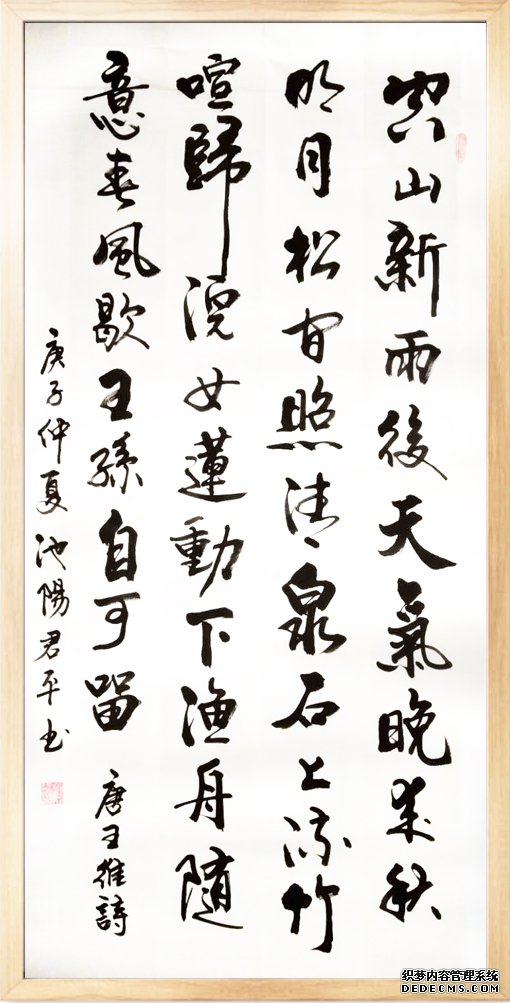 空山新雨後天氣晚来秋
明月松间照清泉石上流竹
喧歸浣女蓮動下漁舟隨
意春風歇王孫自可留 唐王維詩
庚子仲夏池陽君平书
织梦内容管理系统
DEDECMS.COM